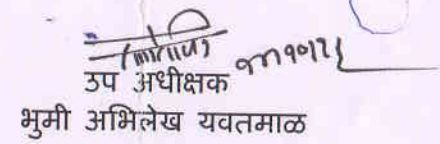 उप अधीक्षक
भुमी अभिलेख यवतमाळ